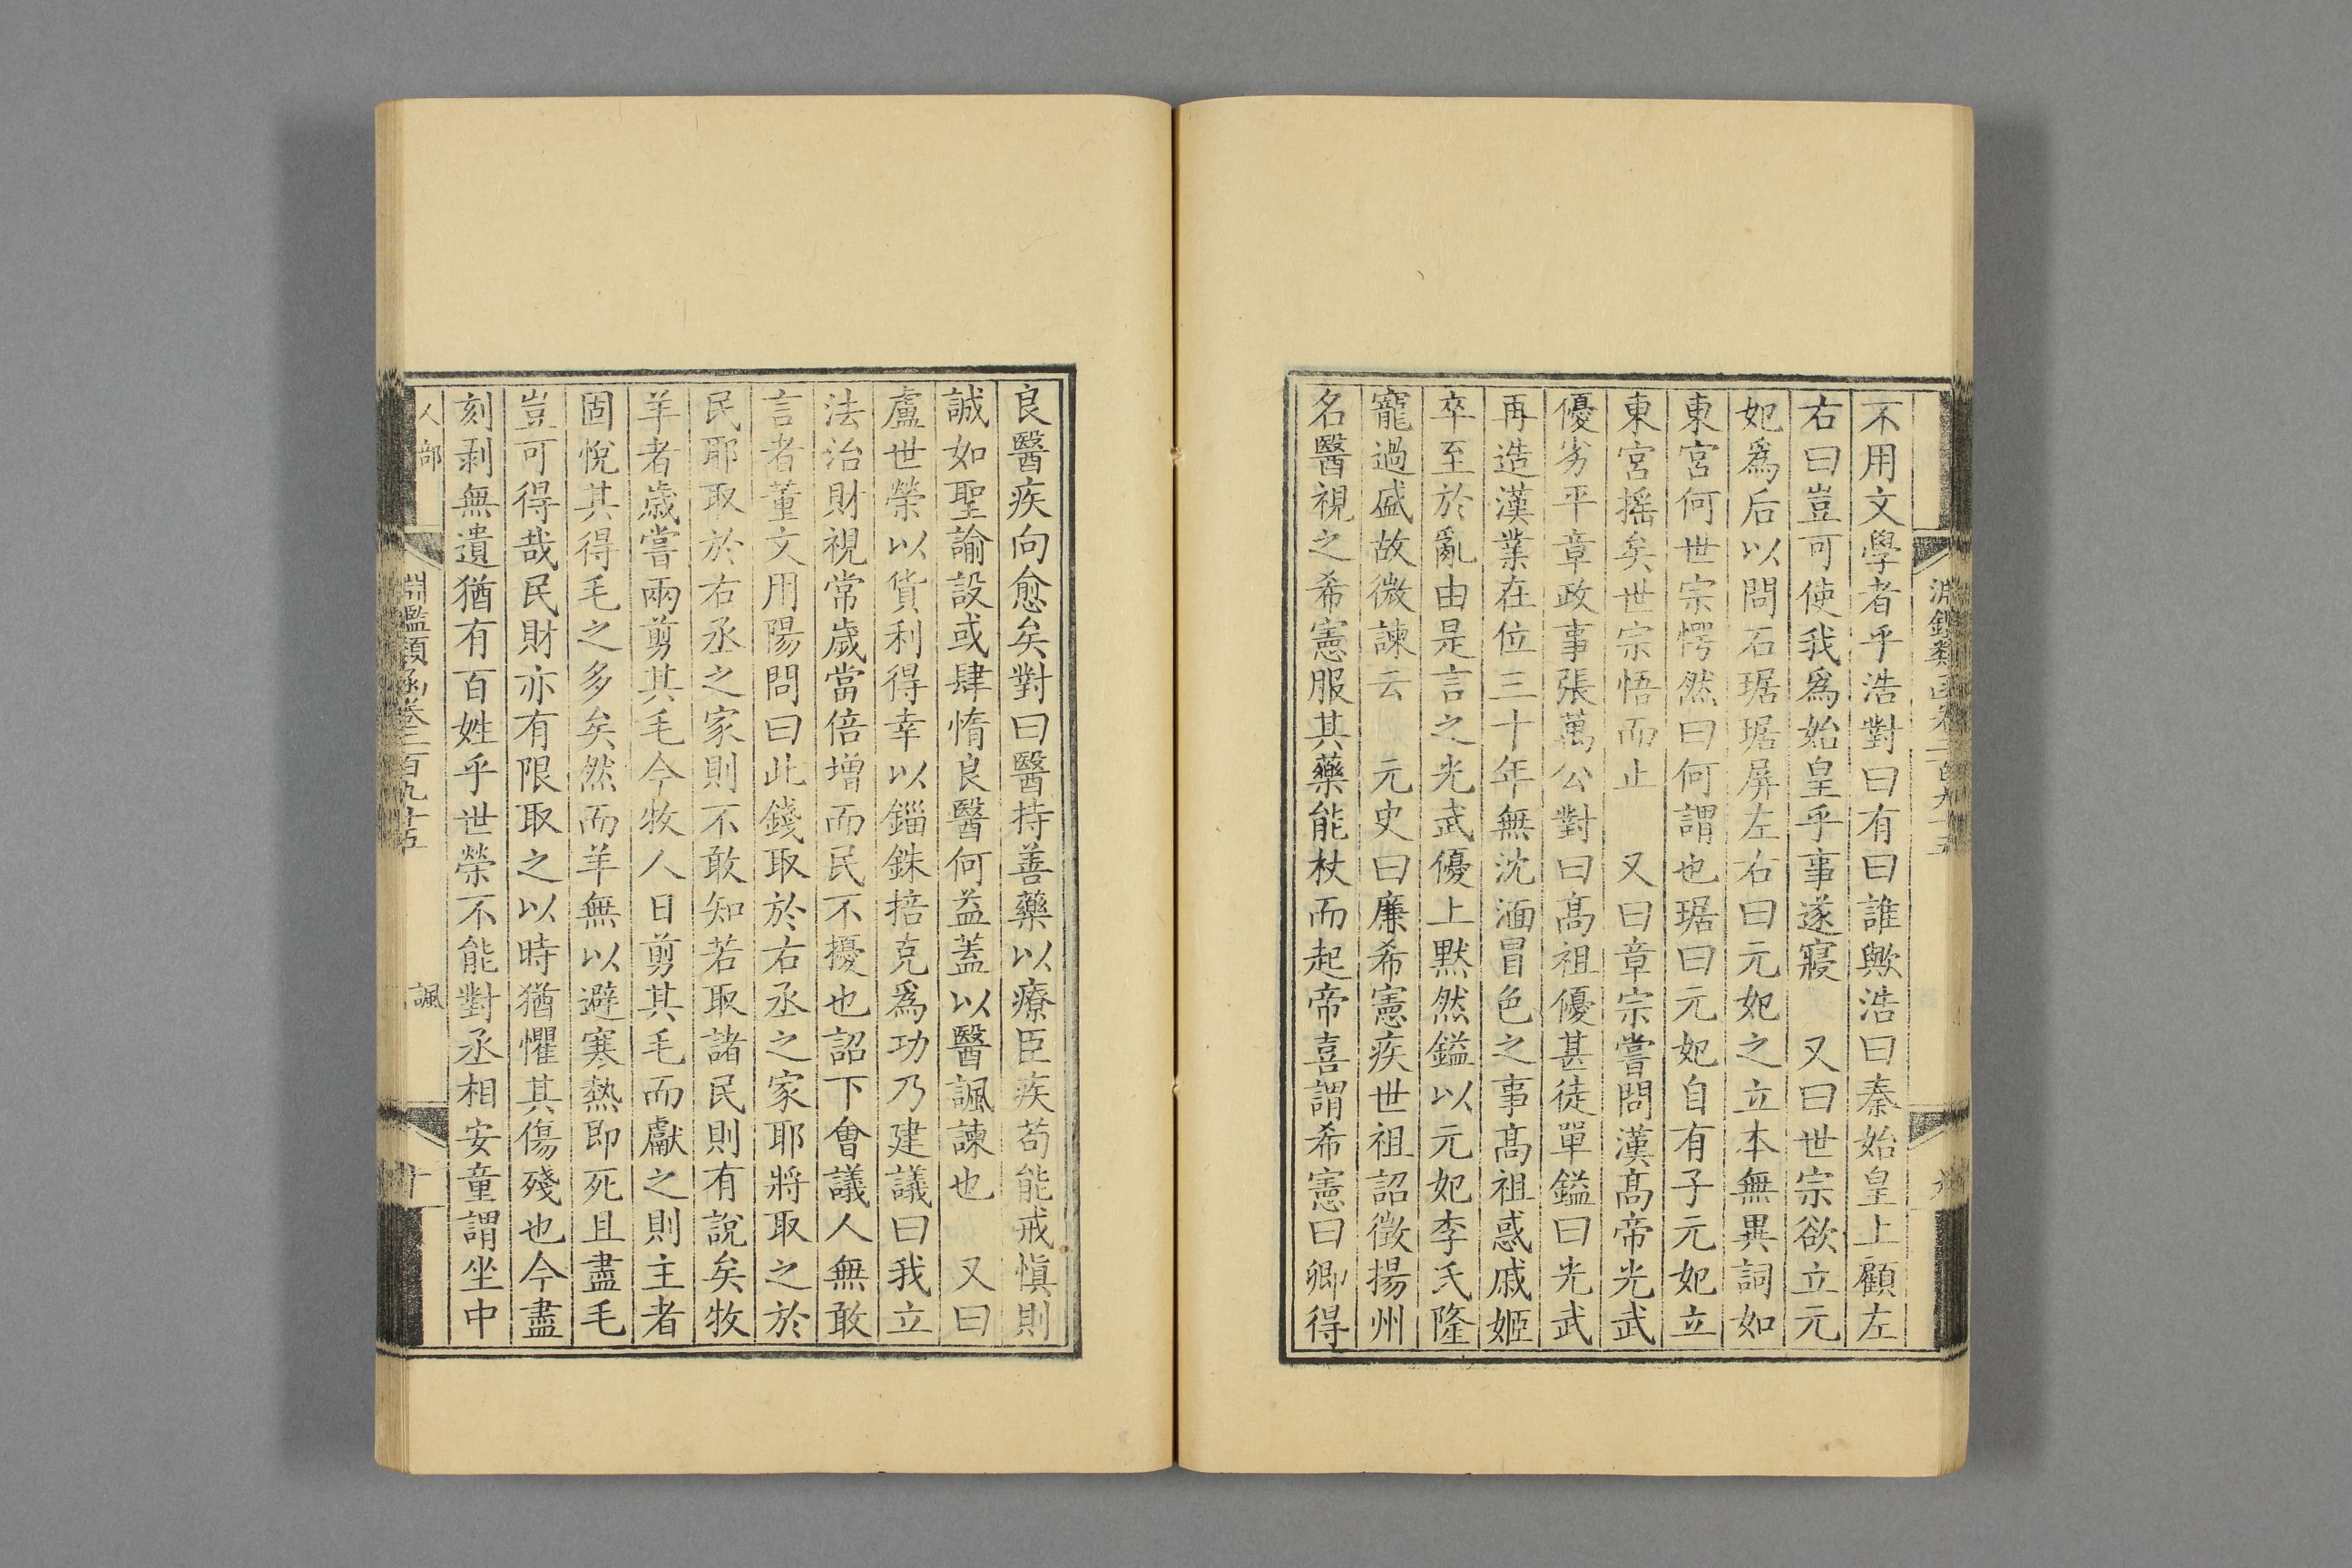 不用文學者乎浩對曰有曰誰歟浩曰秦始皇上顧左
右曰豈可使我爲始皇乎事遂寢　又曰世宗欲立元
妃爲后以問石琚琚屏左右曰元妃之立本無異詞如
東宮何世宗愕然曰何謂也琚曰元妃自有子元妃立
東宮搖矣世宗悟而止　又曰章宗嘗問漢高帝光武
優劣平章政事張萬公對曰高祖優甚徒單鎰曰光武
再造漢業在位三十年無沈湎冒色之事高祖惑戚姬
卒至於亂由是言之光武優上默然鎰以元妃李氏隆
寵過盛故微諫云　元史曰廉希憲疾世祖詔徵揚州
名醫視之希憲服其藥能杖而起帝喜謂希憲曰卿得
良醫疾向愈矣對曰醫持善藥以療臣疾苟能戒愼則
誠如聖諭設或肆惰良醫何益蓋以醫諷諫也　又曰
盧世榮以貨利得幸以錙銖掊克爲功乃建議曰我立
法治財視常歲當倍增而民不擾也詔下會議人無敢
言者董文用陽問曰此錢取於右丞之家耶將取之於
民耶取於右丞之家則不敢知若取諸民則有說矣牧
羊者歲嘗兩剪其毛今牧人日剪其毛而獻之則主者
固悅其得毛之多矣然而羊無以避寒熱即死且盡毛
豈可得哉民財亦有限取之以時猶懼其傷殘也今盡
刻剥無遺猶有百姓乎世榮不能對丞相安童謂坐中
人部　淵鑑類函卷二百九十五　諷　十